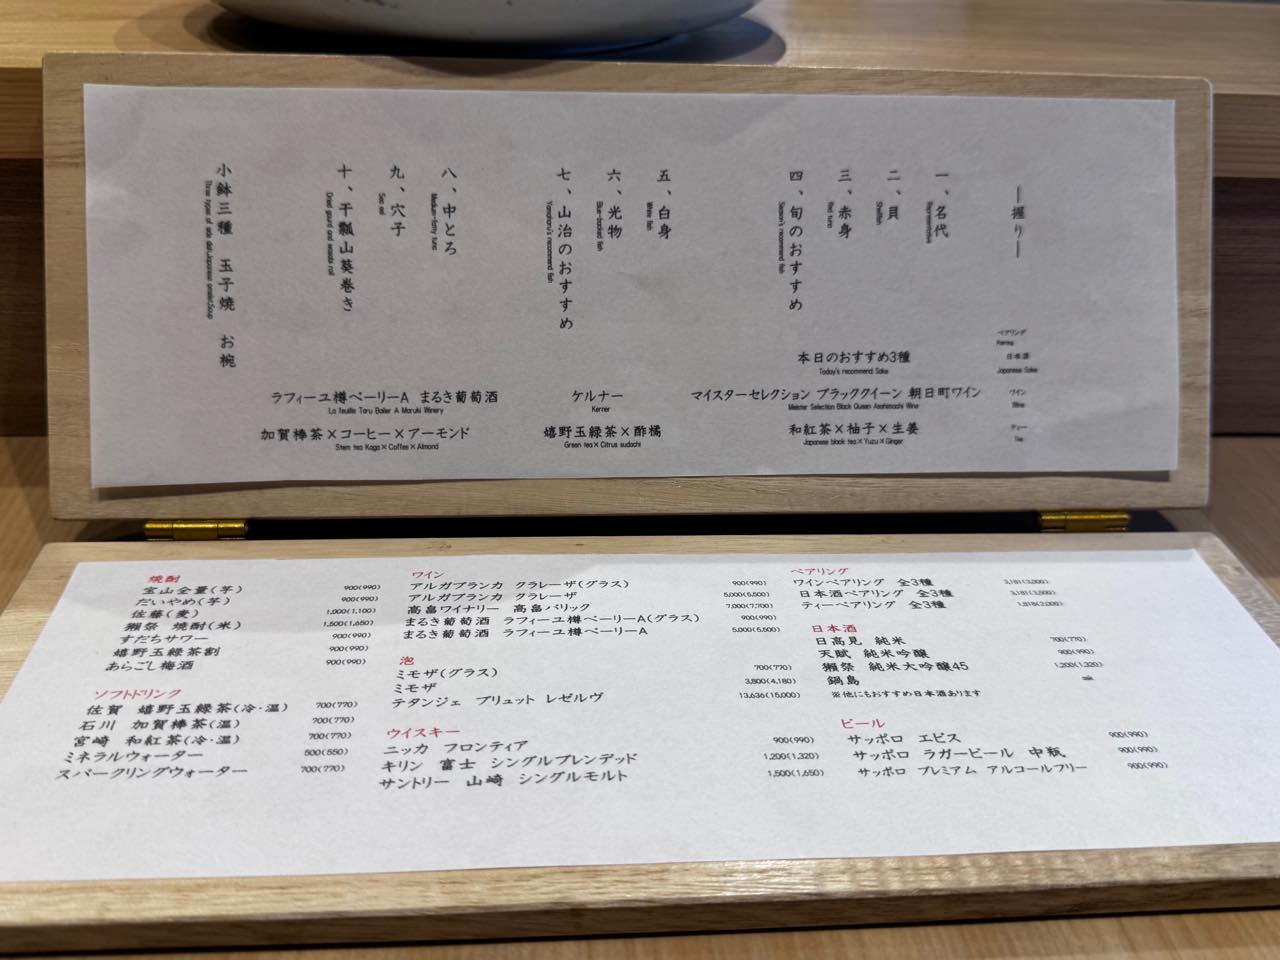 ―握り―
一、名代
Representative
二、貝
Shellfish
三、赤身
Red tuna
四、旬のおすすめ
Season's recommend fish
五、白身
White fish
六、光物
Blue-backed fish
七、山治のおすすめ
Yamaharu's recommend fish
八、中とろ
Medium-fatty tuna
九、穴子
Sea eel
十、干瓢山葵巻き
Dried gourd and wasabi roll
小鉢三種 玉子焼 お椀
Three types of side dish,Japanese omelet,Soup
ペアリング
Pairing
日本酒
Japanese Sake
本日のおすすめ3種
Today's recommend Sake
ワイン
Wine
マイスターセレクション ブラッククイーン 朝日町ワイン
Meister Selection Black Queen Asahimachi Wine
ケルナー
Kerner
ラフィーユ樽ベーリーA まるき葡萄酒
La feuille Taru Bailer A Maruki Winery
ティー
Tea
和紅茶×柚子×生姜
Japanese black tea×Yuzu×Ginger
嬉野玉緑茶×酢橘
Green tea×Citrus sudachi
加賀棒茶×コーヒー×アーモンド
Stem tea Kaga×Coffee×Almond
焼酎
宝山全量(芋) 900(990)
だいやめ(芋) 900(990)
佐藤(麦) 1,000(1,100)
獺祭 焼酎(米) 1,500(1,650)
すだちサワー 900(990)
嬉野玉緑茶割 900(990)
あらごし梅酒 900(990)
ソフトドリンク
佐賀 嬉野玉緑茶(冷・温) 700(770)
石川 加賀棒茶(温) 700(770)
宮崎 和紅茶(冷・温) 700(770)
ミネラルウォーター 500(550)
スパークリングウォーター 700(770)
ワイン
アルガブランカ クラレーザ(グラス) 900(990)
アルガブランカ クラレーザ 5,000(5,500)
高畠ワイナリー 高畠バリック 7,000(7,700)
まるき葡萄酒 ラフィーユ樽ベーリーA(グラス) 900(990)
まるき葡萄酒 ラフィーユ樽ベーリーA 5,000(5,500)
泡
ミモザ(グラス) 700(770)
ミモザ 3,800(4,180)
テタンジェ ブリュット レゼルヴ 13,636(15,000)
ウイスキー
ニッカ フロンティア 900(990)
キリン 富士 シングルブレンデッド 1,200(1,320)
サントリー 山崎 シングルモルト 1,500(1,650)
ペアリング
ワインペアリング 全3種
日本酒ペアリング 全3種
ティーペアリング 全3種 1,818(2,000)
日本酒
日高見 純米 700(770)
天賦 純米吟醸 900(990)
獺祭 純米大吟醸45 1,200(1,320)
鍋島 ask
※他にもおすすめ日本酒あります
ビール
サッポロ エビス 900(990)
サッポロ ラガービール 中瓶 900(990)
サッポロ プレミアム アルコールフリー 900(990)